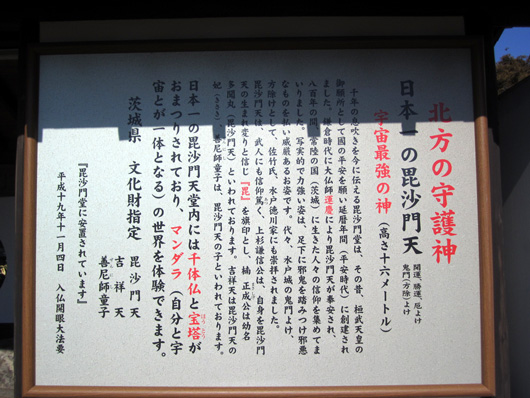 北方の守護神
日本一の毘沙門天
開運、勝運、厄よけ
鬼門(方除)よけ
宇宙最強の神(高さ十六メートル)
千年の息吹きを今に伝える毘沙門堂は、その昔、桓武天皇の
御願所として国の平安を願い延暦年間(平安時代)に創建され
ました。鎌倉時代に大仏師運慶により毘沙門天が奉安され、
八百年の間、常陸の国(茨城)に生きた人々の信仰を集めてま
いりました。写実的で力強い姿は、足下に邪鬼を踏みつけ邪悪
なものを払い威厳あるお姿です。代々、水戸城の鬼門よけ、
方除けとして、佐竹氏、水戸徳川家にも崇拝されました。
毘沙門天は、武人にも信仰篤く、上杉謙信公は、自身を毘沙門
天の生まれ変りと信じ『毘』を旗印とし、楠正成公は幼名
多聞丸(毘沙門天)といわれております。吉祥天は毘沙門天の
妃(きさき)、善尼師童子は、毘沙門天の子といわれております。
日本一の毘沙門天堂内には千体仏と宝塔(ほうとう)が
おまつりされており、マンダラ(自分と宇
宙とが一体となる)の世界を体験できます。
茨城県 文化財指定 毘沙門天
吉祥天
善尼師童子
『毘沙門堂に安置されています』
平成十九年十一月四日 入仏開眼大法要